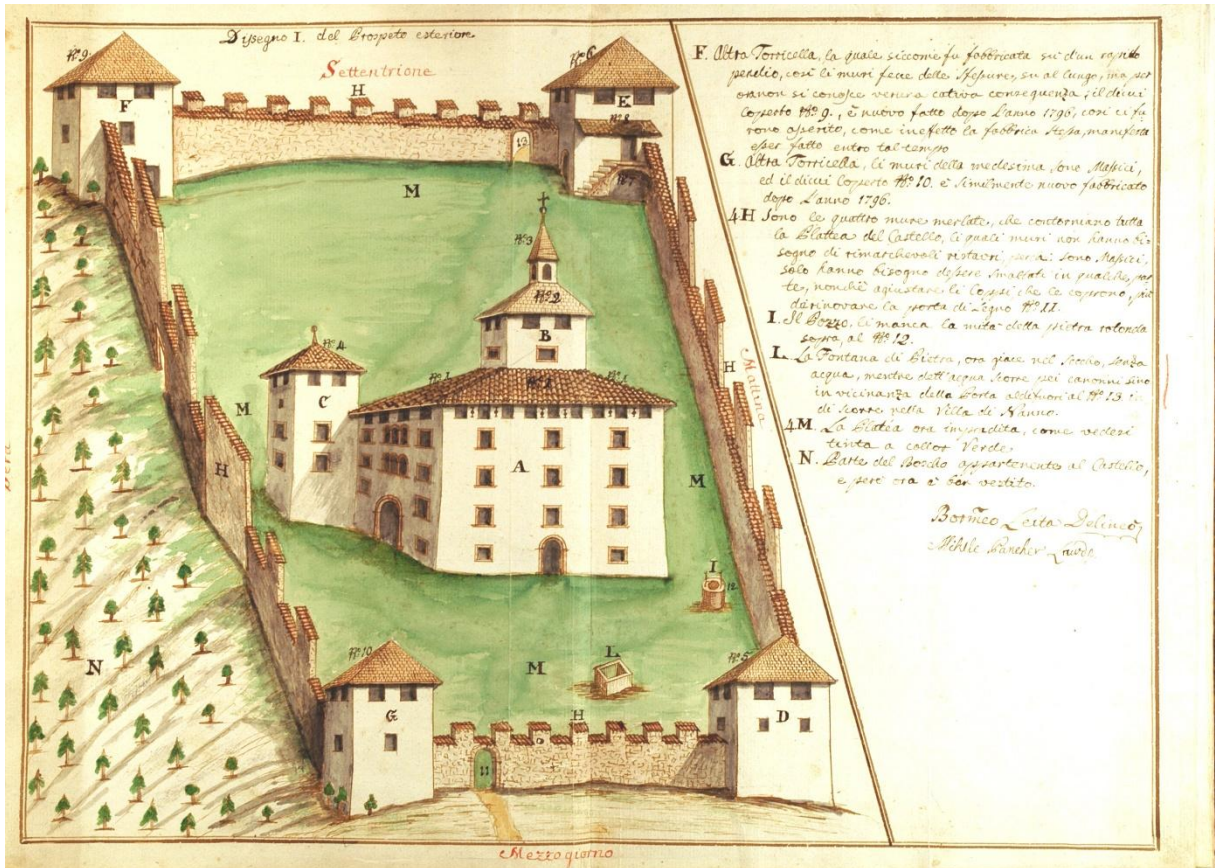 Dissegno I. del Prospeto esteriore
Settentrione
Nº 9.
F
H
Nº 6
E
Nº 8
13
Nº 7
M
Nº 3
Nº 2
B
Nº 4
C
Nº 1
Nº 1
Nº 1
A
H
M
H
Mattina
M
I
12
N
L
M
Nº 10
G
H
11
Nº 5
D
Mezzogiorno
F. Altra Torricella, la quale siccome fu fabbricata su d'un
pendio, così li muri fece delle fessure, su al lungo, ma per
ora non si conosce veruna cativa conseguenza, il di cui
Coperto Nº 9., è nuovo fatto dopo l'anno 1796, così ci fu
rono asserito, come in effetto la fabbrica stessa, manifesta
esser fatto entro tal tempo
G. Altra Torricella, li muri della medesima, sono Massici,
ed il di cui Coperto Nº 10. è similmente nuovo fabbricato
dopo L'anno 1796.
4H Sono le quattro mure merlate, che contorniano tutta
la Plattea del Castello, li quali muri non hanno bi-
sogno di rimarchevoli ristauri, sono Massici,
solo hanno bisogno d'essere smaltati in qualche par
te, nonchè agiustare li Coppi che le coprono, più
di rinovare la porta di Legno Nº 11.
I. Il Pozzo, li manca la mità della pietra rotonda
sopra, al Nº 12.
L. La Fontana di Pietra, ora giace nel Secco, senza
acqua, mentre dell'acqua scorre pei canonni sino
in vicinanza della Porta al di fuori al Nº 13.
di scorre nella Villa di Nanno.
4M. La Platea ora impradita, come vedesi
tinta a collor Verde
N. Parte del Boscho appartenente al Castello,
e però ora è ben vestito.
Leita Delineò
Pancher